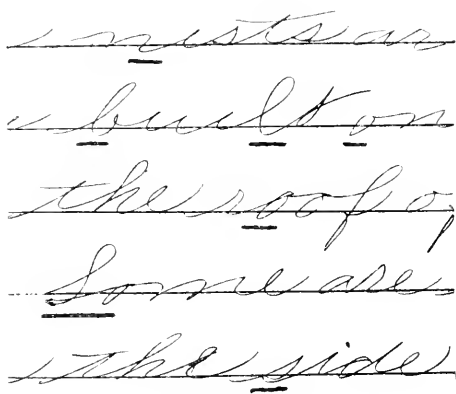 nests ar
built on
the roof o
Some are
the side